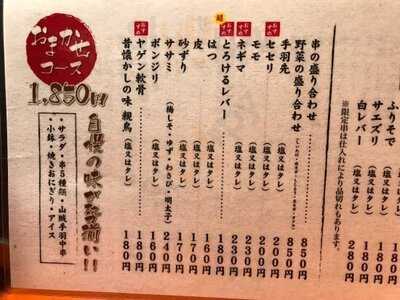 ふりそで (塩又はタレ) 280円
サエズリ (塩又はタレ) 180円
白レバー (塩又はタレ) 180円
※限定串は仕入れにより品切れもあります。
串の盛り合わせ 850円
野菜の盛り合わせ 850円
手羽先 (塩又はタレ) 200円
おすすめ セセリ (塩又はタレ) 200円
モモ (塩又はタレ) 200円
おすすめ ネギマ (塩又はタレ) 230円
超おすすめ とろけるレバー (塩又はタレ) 230円
はつ (塩又はタレ) 180円
皮 (塩又はタレ) 160円
砂ずり (塩又はタレ) 170円
ササミ (梅しそ・ゆず・柚さび・明太子) 240円
ボンジリ (塩又はタレ) 160円
ヤゲン軟骨 (塩又はタレ) 180円
昔懐かしの味 親鳥 (塩又はタレ) 180円
おまかせ
コース
1,850円
自慢の味が勢揃い!!
・サラダ・串5種類・山賊手羽中串
・小鉢・焼きおにぎり・アイス